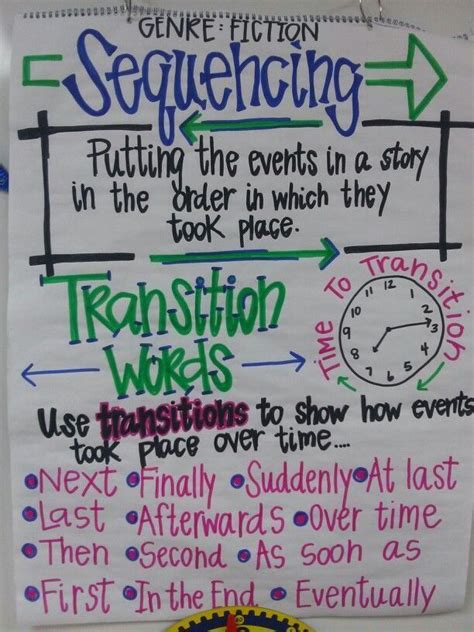 GENRE: FICTION
Sequencing
Putting the events in a story
in the order in which they
took place.
Transition
Words
Time To Transition
12
1
2
3
4
5
6
7
8
9
10
11
Use transitions to show how events
took place over time....
•Next •Finally •Suddenly •At last
•Last •Afterwards •Over time
•Then •Second •As soon as
•First •In the End •Eventually